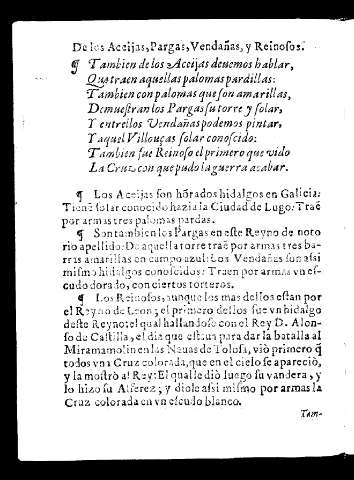 De los Aceijas, Pargas, Vendañas, y Reinosos.
¶ Tambien de los Aceijas deuemos hablar,
Que traen aquellas palomas pardillas:
Tambien con palomas que son amarillas,
Demuestran los Pargas su torre y solar,
Y entrellos Vendañas podemos pintar,
Y aquel Villouças solar conoscido:
Tambien fue Reinoso el primero que vido
La Cruz con que pudo la guerra acabar.
¶ Los Aceijas son hõrados hidalgos en Galicia:
Tienẽ solar conocido hazia la Ciudad de Lugo: Traẽ
por armas tres palomas pardas.
¶ Son tambien los Pargas en este Reyno de noto
rio apellido: De aquella torre traẽ por armas tres ba-
rras amarillas en campo azul: Los Vendañas son assi
mismo hidalgos conoscidos: Traen por armas vn es-
cudo dorado, con ciertos torteros.
¶ Los Reinosos, aunque los mas dellos estan por
el Reyno de Leon; el primero dellos fue vn hidalgo
deste Reyno; el qual hallandose con el Rey D. Alon-
so de Castilla, el dia que estaua para dar la batalla al
Miramamolin en las Nauas de Tolosa, viò primero q̃
todos vna Cruz colorada, que en el cielo se apareciò,
y la mostrò al Rey: El qual le diò luego su vandera, y
lo hizo su Alferez; y diole assi mismo por armas la
Cruz colorada en vn escudo blanco.
Tam-